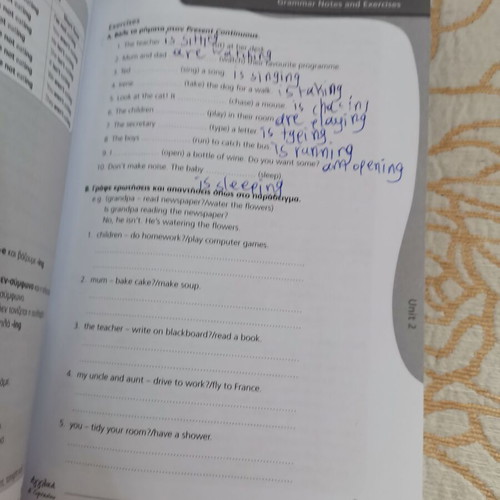 Grammar Notes and Exercises
Exercises
A. Βάλε τα ρήματα στον Present Continuous.
1. The teacher is sitting (sit) at her desk.
2. Mum and dad are watching (watch) their favourite programme.
3. Ted (sing) a song. is singing
4. Irene (take) the dog for a walk. is taking
5. Look at the cat! It (chase) a mouse. is chasing
6. The children (play) in their room. are playing
7. The secretary (type) a letter. is typing
8. The boys (run) to catch the bus. is running
9. I (open) a bottle of wine. Do you want some? am opening
10. Don't make noise. The baby (sleep).
is sleeping
B. Γράψε ερωτήσεις και απαντήσεις όπως στο παράδειγμα.
e.g. (grandpa – read newspaper?/water the flowers)
Is grandpa reading the newspaper?
No, he isn't. He's watering the flowers.
1. children – do homework?/play computer games.
2. mum – bake cake?/make soup.
3. the teacher – write on blackboard?/read a book.
4. my uncle and aunt – drive to work?/fly to France.
5. you – tidy your room?/have a shower.
Unit 2
και βάζουμε -ing